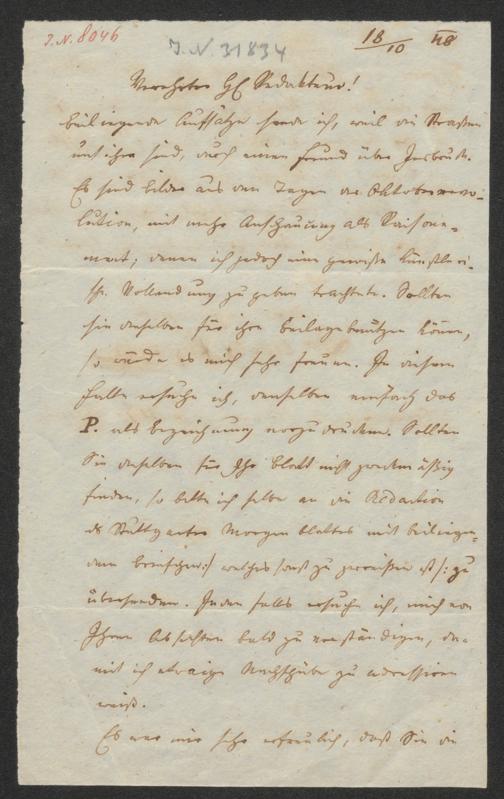 J.N. 8046
J.N. 31834
18/10 48
Verehrter H Redakteur!
Beiliegende Aufsätze sende ich, weil die Straßen
unsicher sind, durch einen Freund über Insbruk.
Es sind Bilder aus den Tagen der Oktoberrevo-
lution, mit mehr Anschauung als Raisone-
ment; denen ich jedoch eine gewisse künstleri-
sche Vollendung zu geben trachtete. Sollten
Sie dieselben für Ihre Beilage benützen können,
so würde es mich sehr freuen. In diesem
Falle ersuche ich, denselben einfach das
P. als Bezeichnung vorzudrucken. Sollten
Sie dieselben für Ihr Blatt nicht zweckmäßig
finden, so bitte ich selbe an die Redaction
des Stuttgarter Morgenblattes mit beiliegen-
dem Briefchen :/ welches sonst zu zerreißen ist /: zu
übersenden. Jeden falls ersuche ich, mich von
Ihren Absichten bald zu verständigen, da-
mit ich etwaige Nachschübe zu adressiren
weiß.
Es war mir sehr erfreulich, daß Sie die